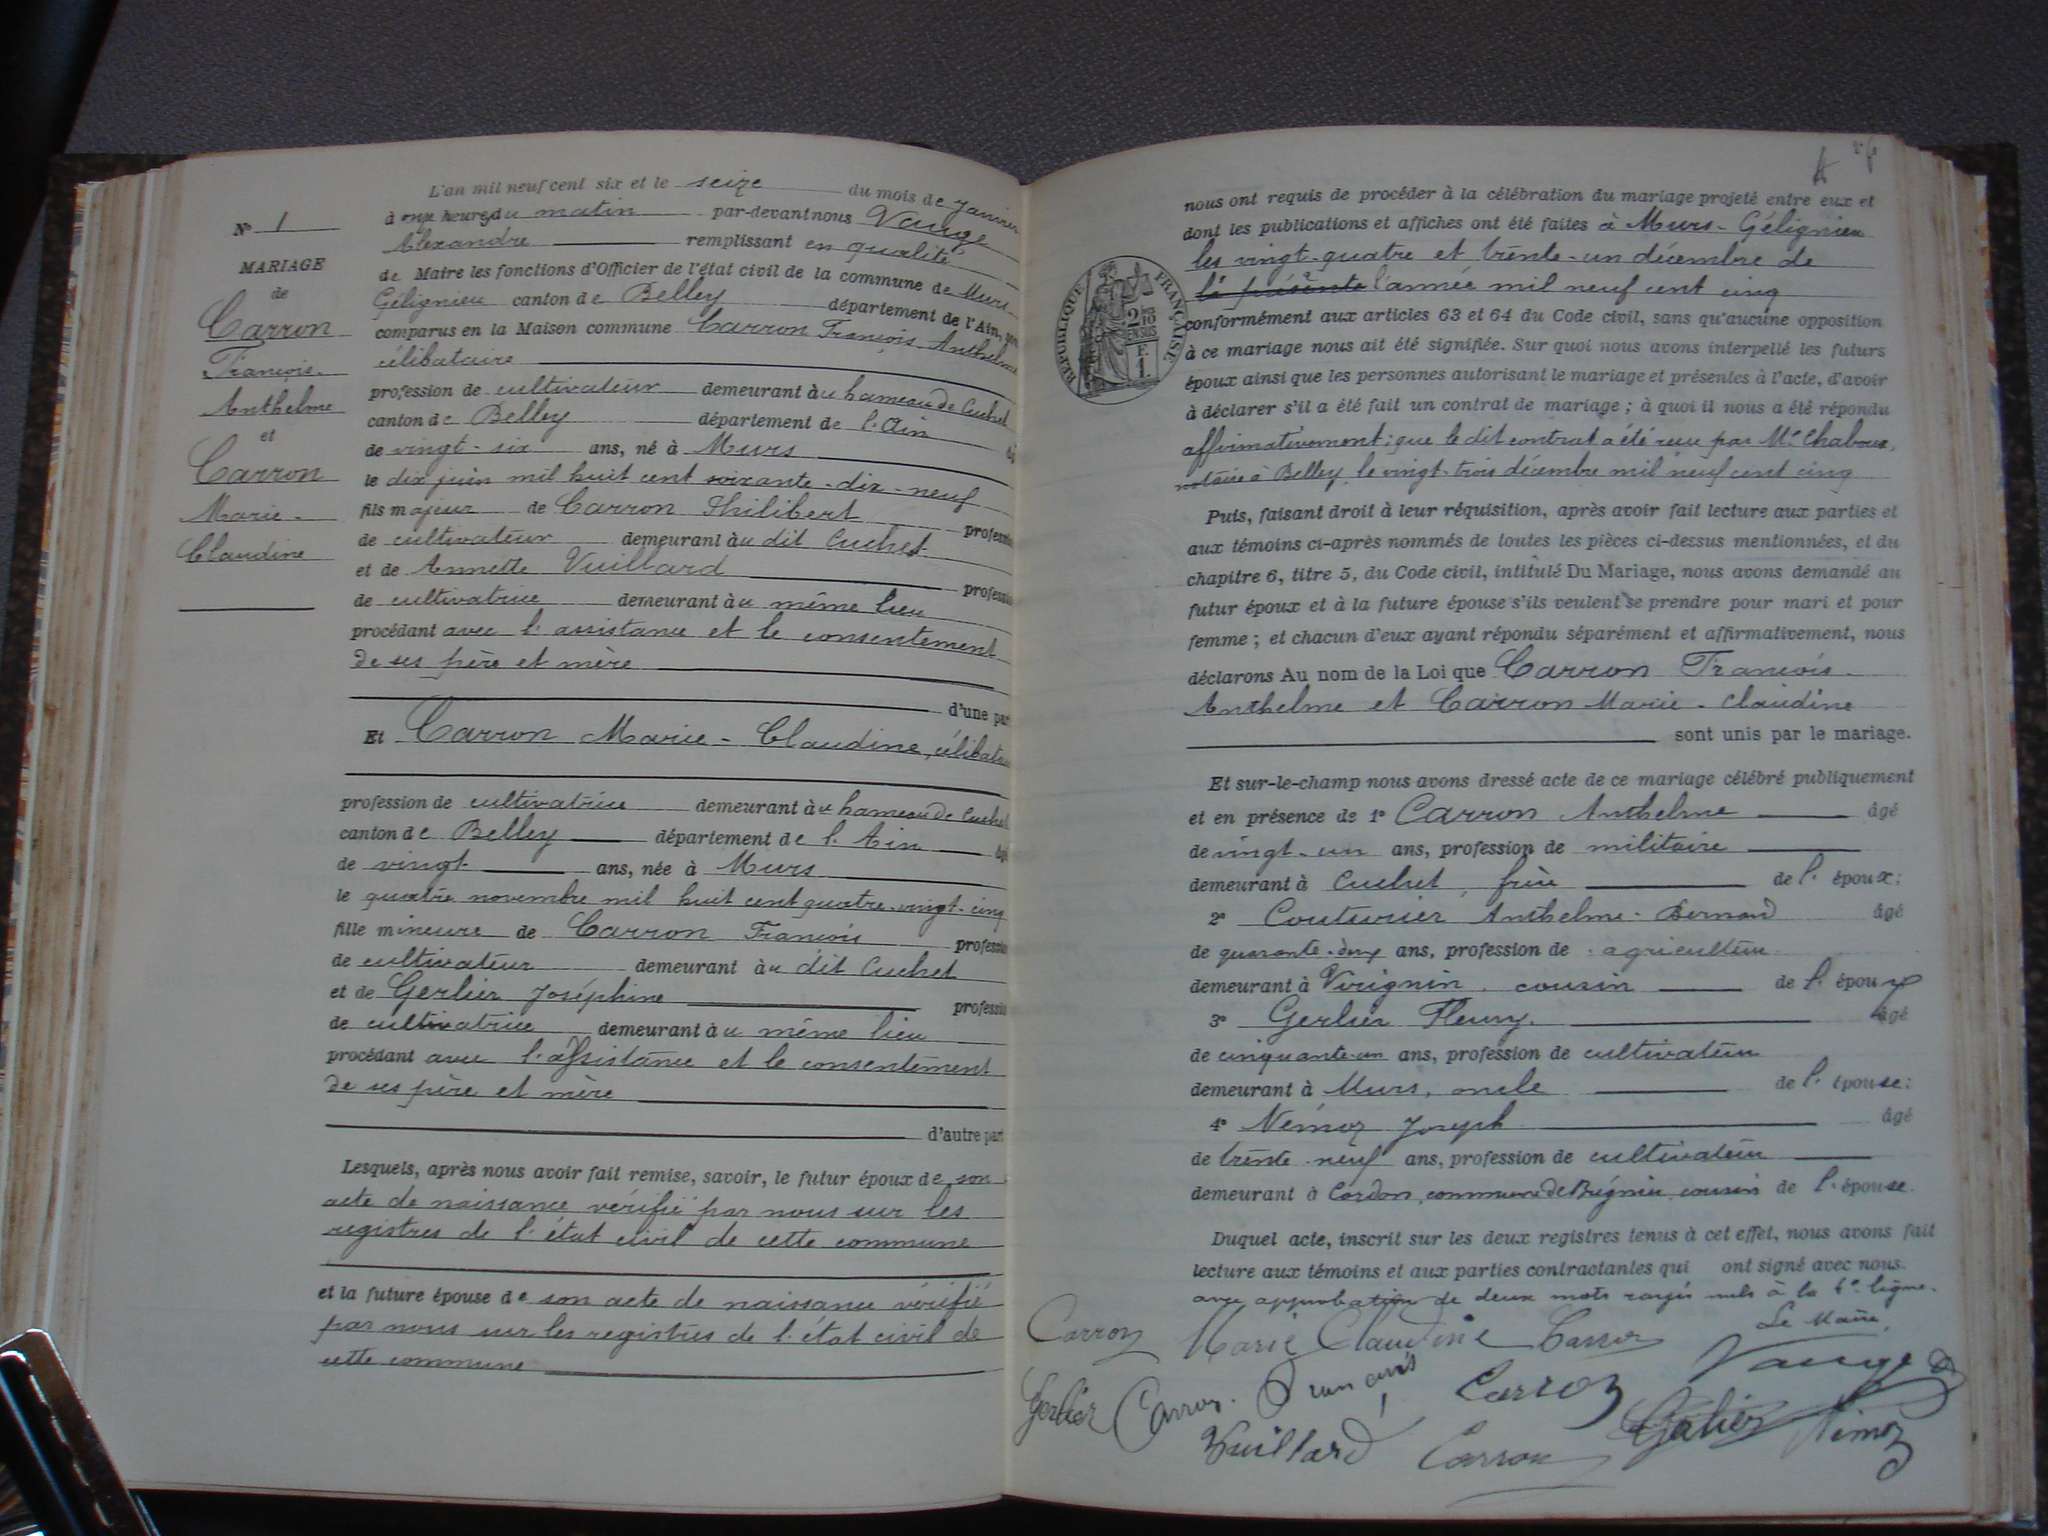 L'an mil neuf cent six et le seize du mois de janvier
à onze heures du matin par-devant nous Vauge
Alexandre remplissant en qualité
de Maire les fonctions d'Officier de l'état civil de la commune de Murs-
Gélignieu canton de Belley département de l'Ain, sont
comparus en la Maison commune Carron François Anthelme
célibataire
profession de cultivateur demeurant au hameau de Cuchet
canton de Belley département de l'Ain âgé
de vingt-six ans, né à Murs
le dix juin mil huit cent soixante-dix-neuf
fils majeur de Carron Philibert profession
de cultivateur demeurant au dit Cuchet
et de Annette Vuillard profession
de cultivatrice demeurant au même lieu
procédant avec l'assistance et le consentement
de ses père et mère
d'une part
Et Carron Marie-Claudine, célibataire
profession de cultivatrice demeurant au hameau de Cuchet
canton de Belley département de l'Ain âgée
de vingt ans, née à Murs
le quatre novembre mil huit cent quatre-vingt-cinq
fille mineure de Carron François profession
de cultivateur demeurant au dit Cuchet
et de Gerlier Joséphine profession
de cultivatrice demeurant au même lieu
procédant avec l'assistance et le consentement
de ses père et mère
d'autre part
Lesquels, après nous avoir fait remise, savoir, le futur époux de son
acte de naissance vérifié par nous sur les
registres de l'état civil de cette commune
et la future épouse de son acte de naissance vérifié
par nous sur les registres de l'état civil de
cette commune
N° 1
MARIAGE
de
Carron
François-
Anthelme
et
Carron
Marie-
Claudine
nous ont requis de procéder à la célébration du mariage projeté entre eux et
dont les publications et affiches ont été faites à Murs-Gélignieu
les vingt-quatre et trente-un décembre de
la présente l'année mil neuf cent cinq
conformément aux articles 63 et 64 du Code civil, sans qu'aucune opposition
à ce mariage nous ait été signifiée. Sur quoi nous avons interpellé les futurs
époux ainsi que les personnes autorisant le mariage et présentes à l'acte, d'avoir
à déclarer s'il a été fait un contrat de mariage ; à quoi il nous a été répondu
affirmativement ; que le dit contrat a été reçu par Me Chaboux,
notaire à Belley, le vingt-trois décembre mil neuf cent cinq
Puis, faisant droit à leur réquisition, après avoir fait lecture aux parties et
aux témoins ci-après nommés de toutes les pièces ci-dessus mentionnées, et du
chapitre 6, titre 5, du Code civil, intitulé Du Mariage, nous avons demandé au
futur époux et à la future épouse s'ils veulent se prendre pour mari et pour
femme ; et chacun d'eux ayant répondu séparément et affirmativement, nous
déclarons Au nom de la Loi que Carron François-
Anthelme et Carron Marie-Claudine
sont unis par le mariage.
Et sur-le-champ nous avons dressé acte de ce mariage célébré publiquement
et en présence de 1° Carron Anthelme âgé
de vingt-un ans, profession de militaire
demeurant à Cuchet, frère de l'époux ;
2° Couturier Anthelme-Bernard âgé
de quarante-deux ans, profession de agriculteur
demeurant à Virignin, cousin de l'époux
3° Gerlier Fleury. âgé
de cinquante-un ans, profession de cultivateur
demeurant à Murs, oncle de l'épouse ;
4° Némoz Joseph âgé
de trente-neuf ans, profession de cultivateur
demeurant à Cordon, commune de Brégnier, cousin de l'épouse.
Duquel acte, inscrit sur les deux registres tenus à cet effet, nous avons fait
lecture aux témoins et aux parties contractantes qui ont signé avec nous.
avec approbation de deux mots rayés nuls à la 4e ligne.
Le Maire,
Carron Marie Claudine Carron Vauge
Gerlier Carron François Carron
Vuillard Carron Gerlier Némoz
RÉPUBLIQUE FRANÇAISE
2/10 EN SUS
F.
1.